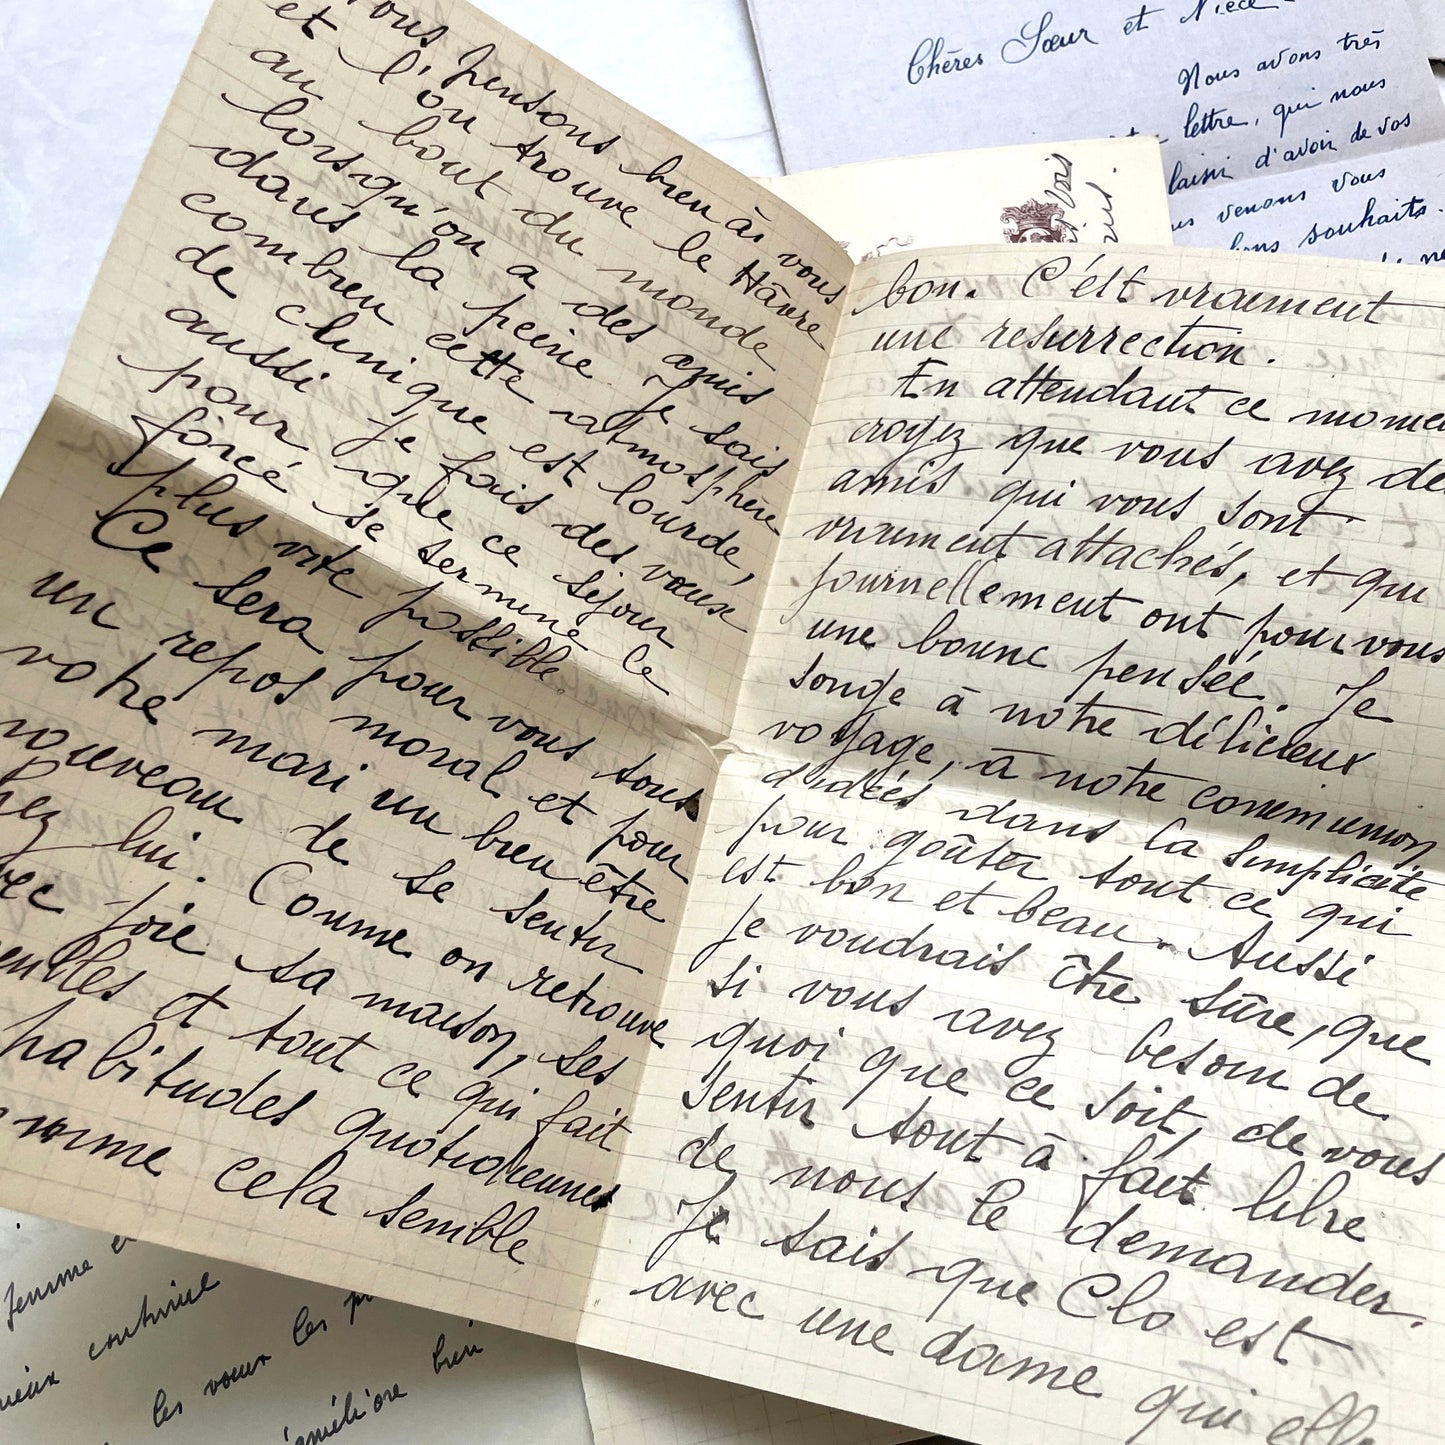 nous pensons bien à vous
et l'on trouve le Hâvre
au bout du monde
lorsqu'on a des amis
dans la peine. Je sais
combien cette atmosphère
de clinique est lourde,
aussi je fais des vœux
pour que ce séjour
forcé se termine le
plus vite possible.
Ce sera pour vous tous
un repos moral et pour
votre mari un bien être
nouveau de se sentir
chez lui. Comme on retrouve
avec joie sa maison, ses
meubles et tout ce qui fait
habitudes quotidiennes
comme cela semble
bon. C'est vraiment
une resurrection.
En attendant ce momen
croyez que vous avez de
amis qui vous sont
vraiment attachés, et qui
journellement ont pour vous
une bonne pensée. Je
songe à notre délicieux
voyage, à notre communion
d'idées dans la simplicité
pour goûter tout ce qui
est bon et beau. Aussi
je voudrais être sûre, que
si vous avez besoin de
quoi que ce soit, de vous
sentir tout à fait libre
de nous le demander.
Je sais que Clo est
avec une dame qui elle
Chères Sœur et Nièce
Nous avons très
lettre, qui nous
laisir d'avoir de vos
us venons vous
bons souhaits.
femme e
mieux continue
les vœux les p
améliore bien